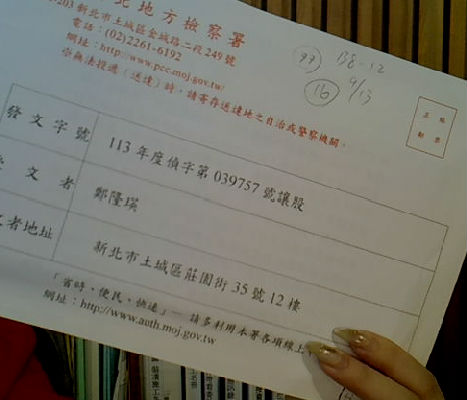 北地方檢察署
203 新北市土城區金城路二段249號
電話：(02)2261-6192
網址：http://www.pcc.moj.gov.tw/
※無法投遞(送達)時，請寄存送達地之自治或警察機關。
93 B8-12
16 9/13
發文字號 113年度偵字第039757號讓股
文者 鄭隆瑛
文者地址 新北市土城區莊園街35號12樓
「省時、便民、快速」——請多利用本署各項線上
網址：http://www.aoth.moj.gov.tw